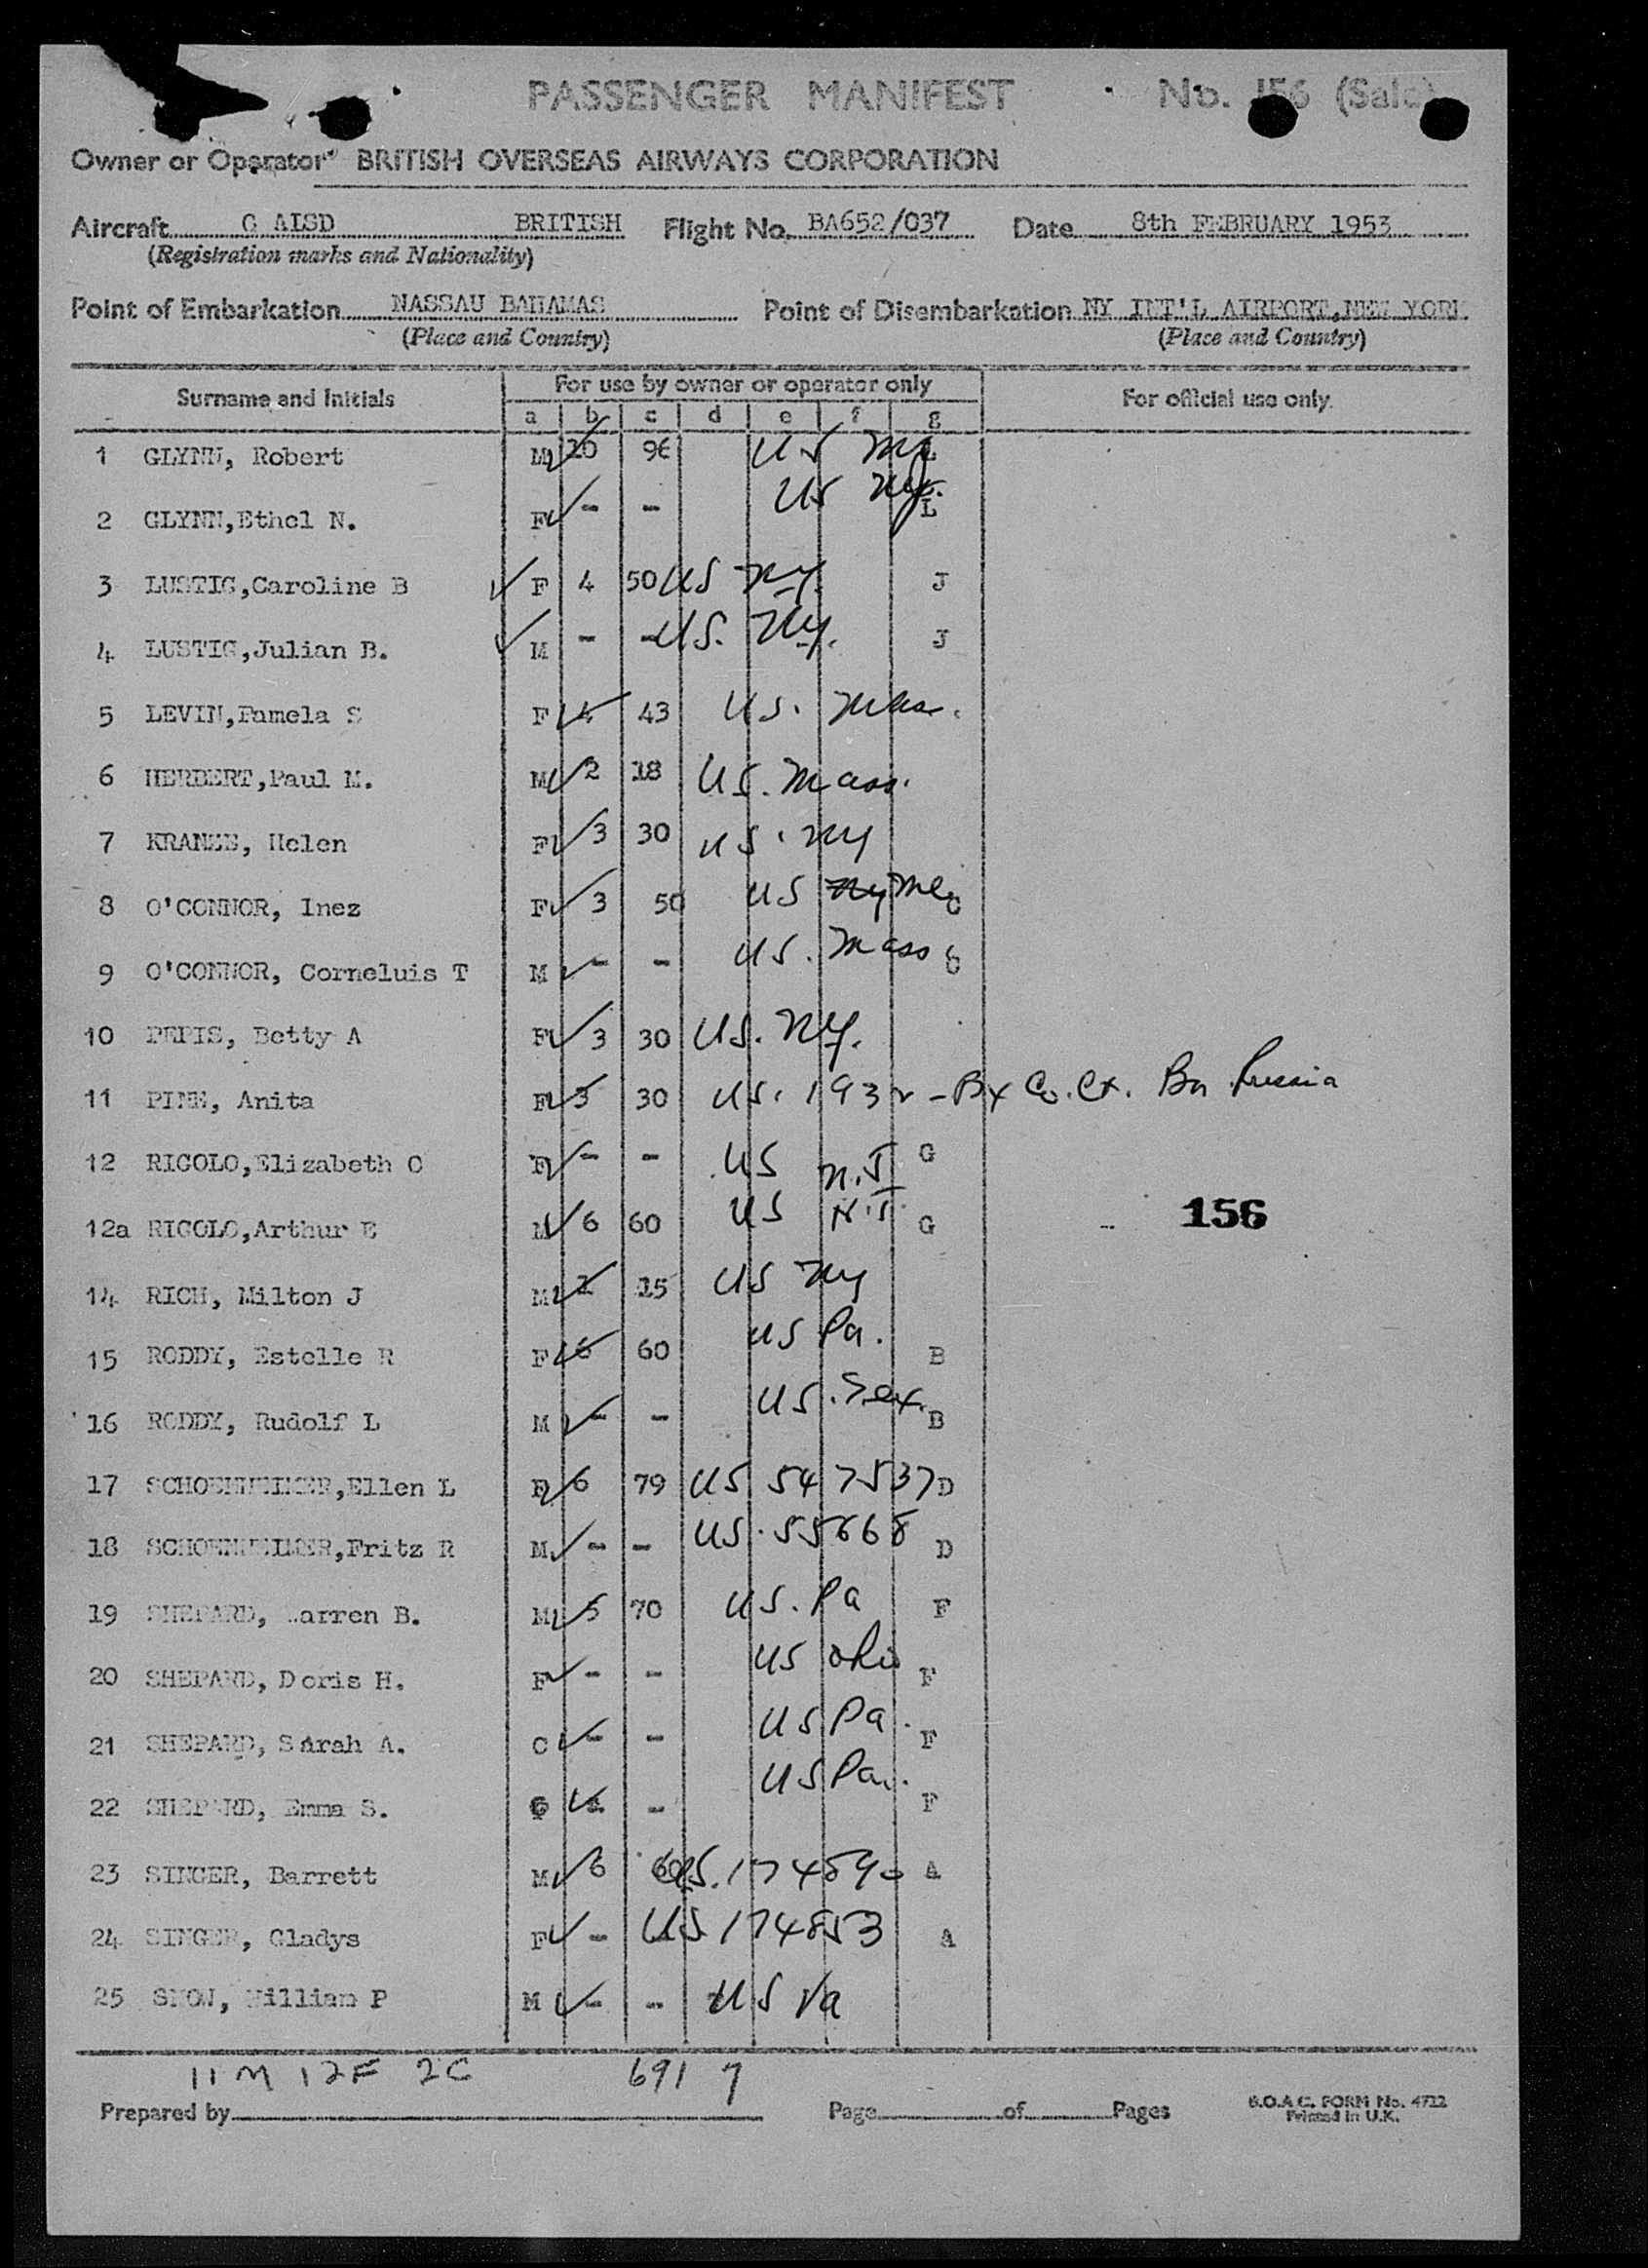 PASSENGER MANIFEST No. 156 (Sale)
Owner or Operator BRITISH OVERSEAS AIRWAYS CORPORATION
Aircraft G ALSD BRITISH Flight No. BA652/037 Date 8th FEBRUARY 1953
(Registration marks and Nationality)
Point of Embarkation NASSAU BAHAMAS Point of Disembarkation NY INT'L AIRPORT, NEW YORK
(Place and Country) (Place and Country)
Surname and Initials For use by owner or operator only For official use only.
a b c d e f g
1 GLYNN, Robert M 10 96 US L
2 GLYNN,Ethel N. F - - US L
3 LUSTIG,Caroline B F 4 50 US NY. J
4 LUSTIG,Julian B. M - - US. NY. J
5 LEVIN,Pamela S F 4 43 US. Mass.
6 HERBERT,Paul M. M 2 18 US. Mass.
7 Helen F 3 30 US. NY
8 O'CONNOR, Inez F 3 50 US NY Me C
9 O'CONNOR, Corneluis T M - - US. Mass C
10 PEPIS, Betty A F 3 30 US. NY.
11 Anita F 3 30 US. 1932 - Bx Co. Ct. Bn Russia
12 RICOLO,Elizabeth C F - - US N.J G
12a RICOLO,Arthur E M 6 60 US N.J. G
156
14 RICH, Milton J M 1 15 US NY
15 RODDY, Estelle R F 6 60 US Pa. B
16 RODDY, Rudolf L M - - US. Tex. B
17 SCHOENHEIMER,Ellen L F 6 79 US 547537 D
18 SCHOENHEIMER,Fritz R M - - US. 55668 D
19 SHEPARD, Warren B. M 5 70 US. Pa F
20 SHEPARD, Doris H. F - - US Ohio F
21 SHEPARD, Sarah A. C - - US Pa. F
22 SHEPARD, Emma S. C - - US Pa. F
23 SINGER, Barrett M 6 60 US. 174890 A
24 SINGER, Gladys F - - US 174853 A
25 SNOW, William P M - - US Va
11M 12F 2C 691 7
Prepared by Page of Pages B.O.A.C. FORM No. 4722
Printed in U.K.